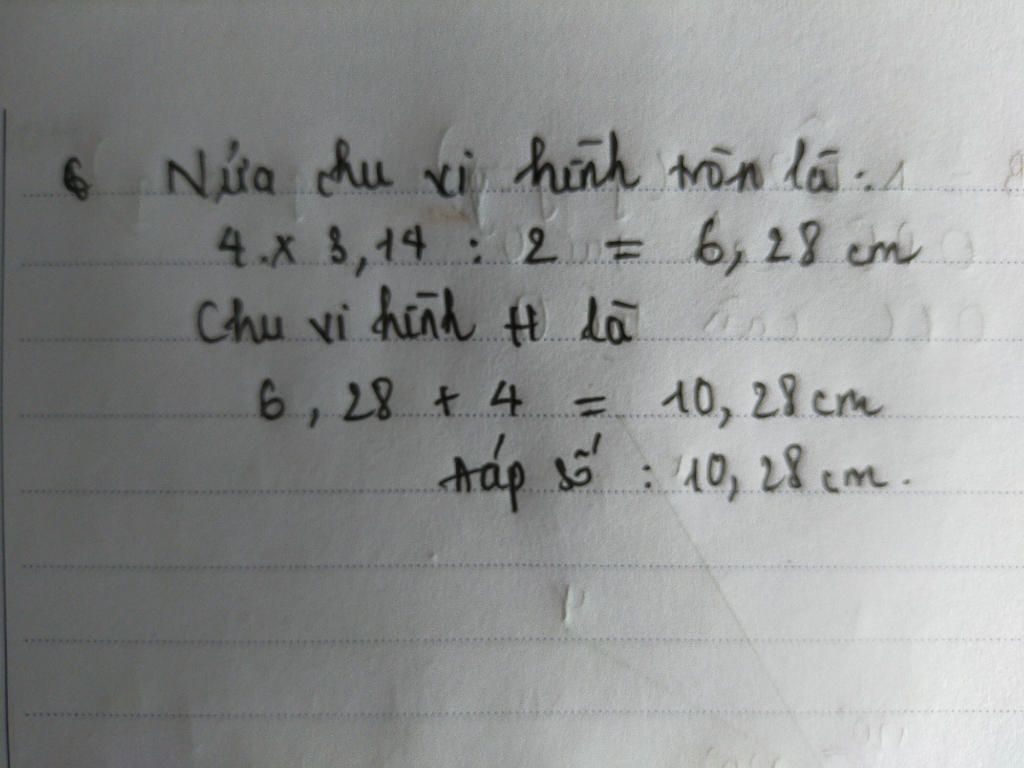 6 Nửa chu vi hình tròn là:
4 x 3,14 : 2 = 6,28 cm
Chu vi hình H là
6,28 + 4 = 10,28 cm
Đáp số : 10,28 cm.